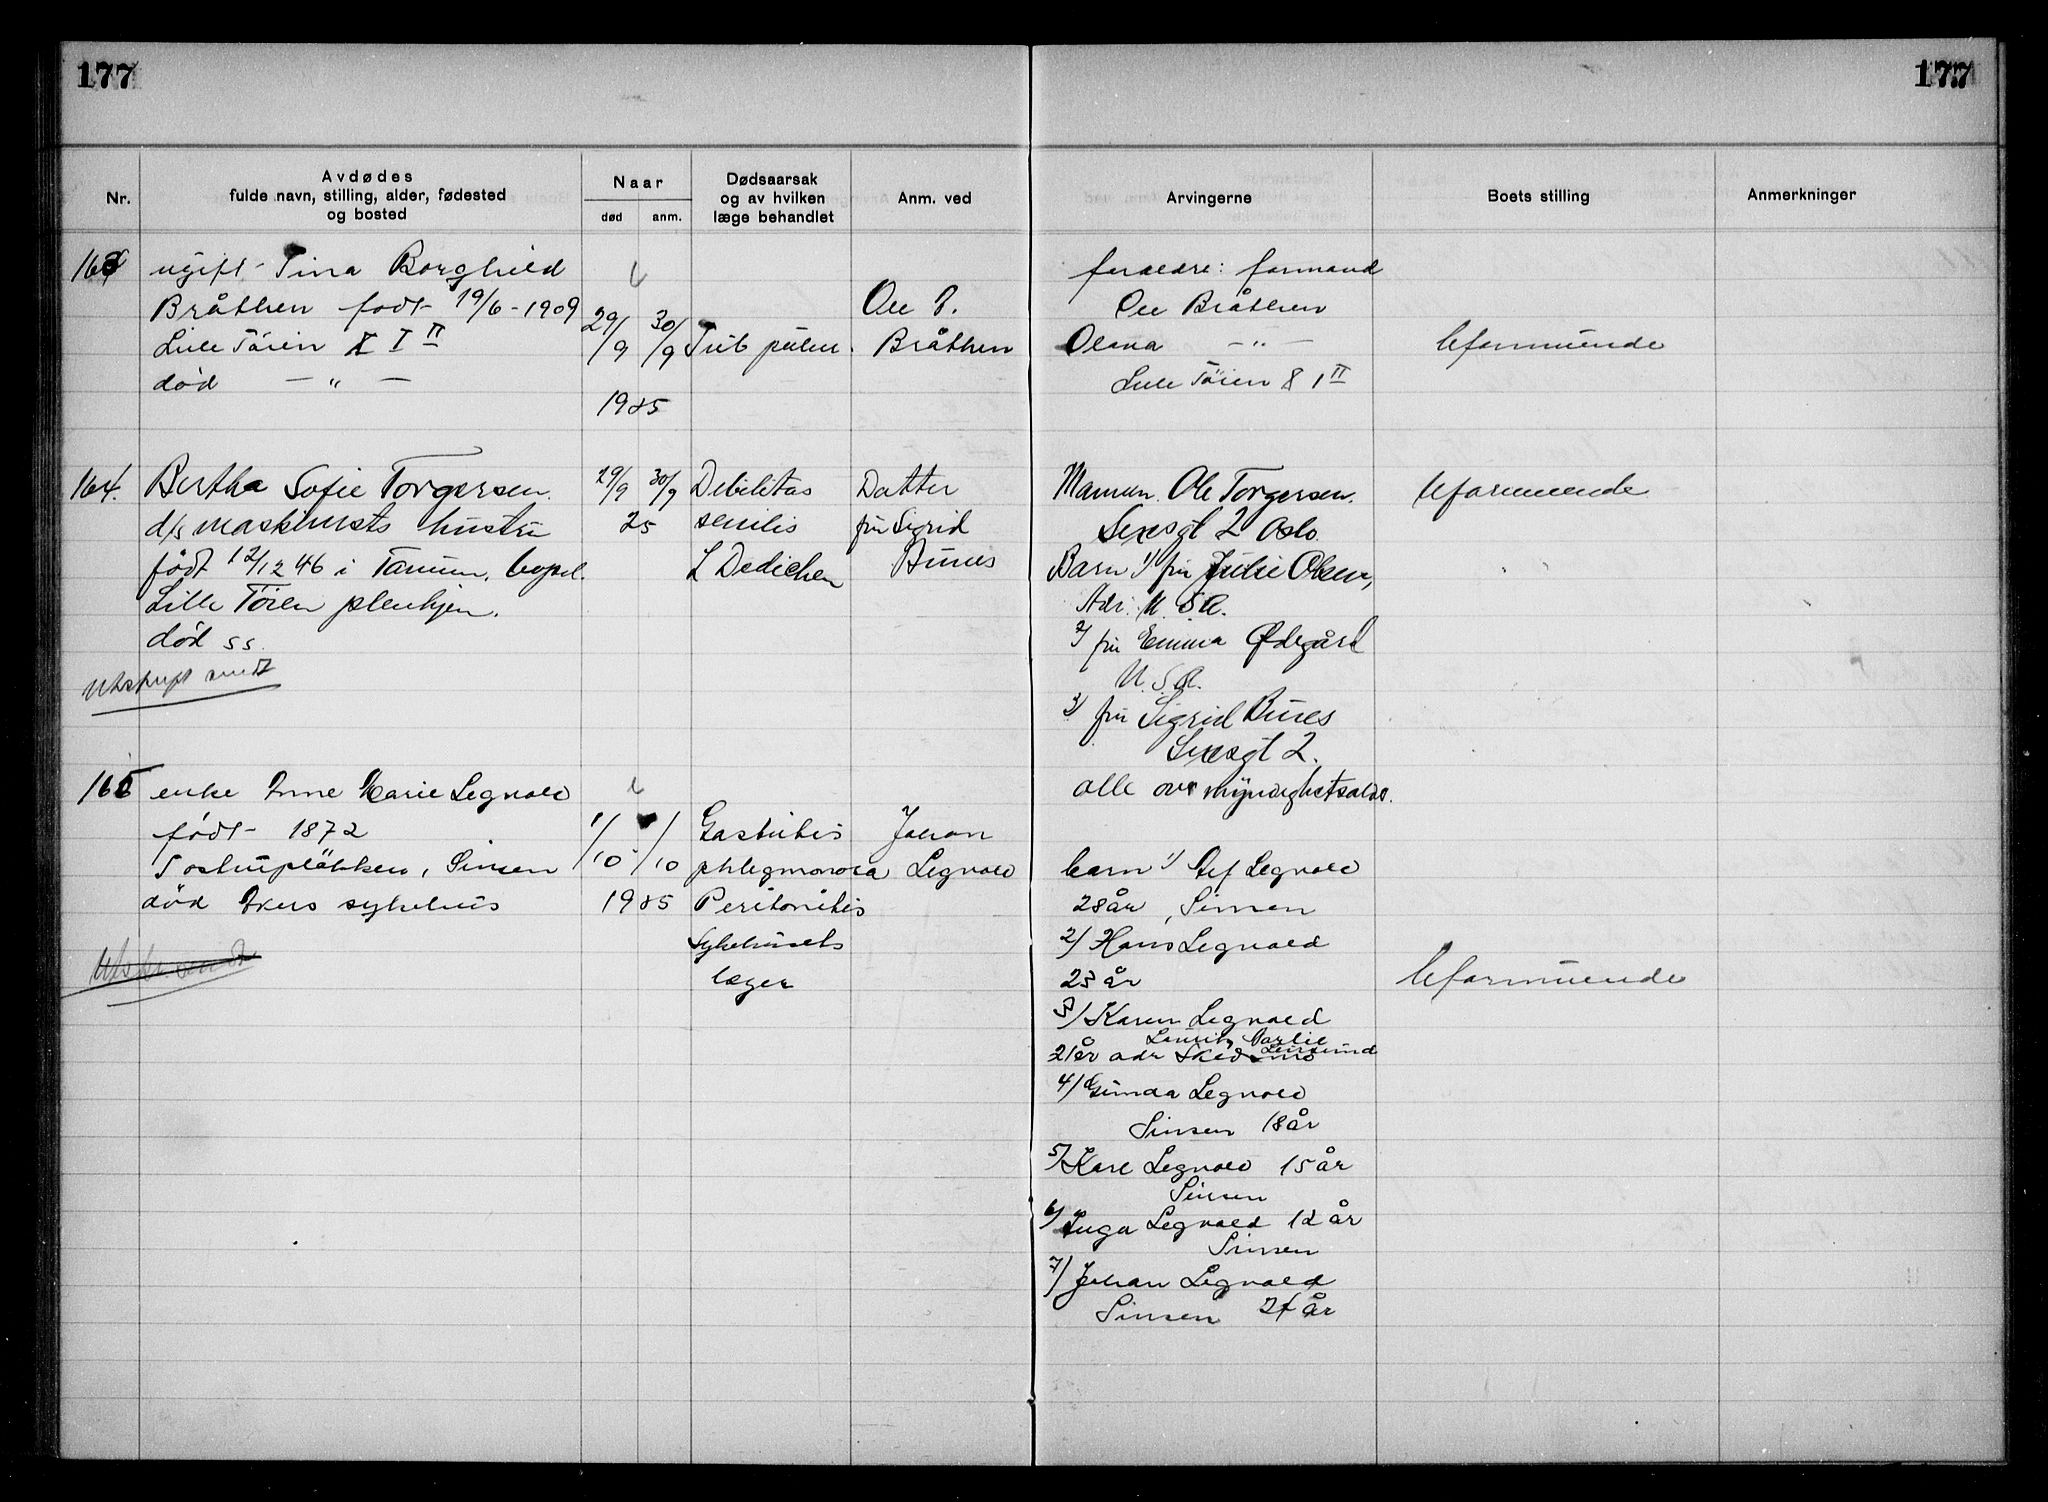 177
177
Nr.
Avdødes
fulde navn, stilling, alder, fødested
og bosted
Naar
død
anm.
Dødsaarsak
og av hvilken
læge behandlet
Anm. ved
Arvingerne
Boets stilling
Anmerkninger
163
ugift Tina Borghild
Bråthen født 19/6-1909
Lille Töien X I II
død — " —
29/9 30/9
1925
Tub pulm.
Ole P.
Bråthen
foraeldre: formand
Ole Bråthen
Olava — " —
Lille Töien 8 1 II
Uformuende
164.
Bertha Sofie Torgersen.
d/s maskinists hustru
født 12/12 46 i Tanum, bopel.
Lille Töien pleiehjem.
død ss.
Utskrift sendt
29/9 30/9
25
Debilitas
senilis
L Dedichen
Datter
fru Sigrid
Bunes
Mannen. Ole Torgersen.
Sexesgt 2 Oslo.
Barn 1/ fru Julie Olsen,
Adr. U.S.A.
2/ fru Emma Ødegård
U.S.A.
3/ fru Sigrid Bunes
Sexesgt 2.
alle over myndighetsalder.
Uformuende
165
enke Anne Marie Legvold
født 1872
Tostrupløkken, Sinsen
død Akers sykehus
Utskr. sendt
1/10 /10
1925
Gastritis
phlegmonosa
Peritonitis
Sykehusets
læger
Johan
Legvold
barn 1/ Alf Legvold
28 år, Sinsen
2/ Hans Legvold
23 år
3/ Karen Legvold
21 år adr Skedsmo
4/ Gunda Legvold
Sinsen 18 år
5/ Karl Legvold 15 år
Sinsen
6/ Inga Legvold 12 år
Sinsen
7/ Johan Legvold
Sinsen 24 år
Uformuende